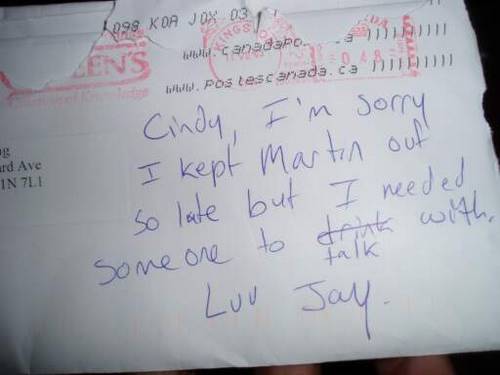 098 K0A J0X 03
KINGSTON
www.canadapo a ))))))))))
0 4 8
EEN'S
www.postescanada.ca ))))))))))
of Knowledge
ng
ard Ave
1N 7L1
Cindy, I'm sorry
I kept Martin out
so late but I needed
someone to drink with.
talk
Luv Jay.